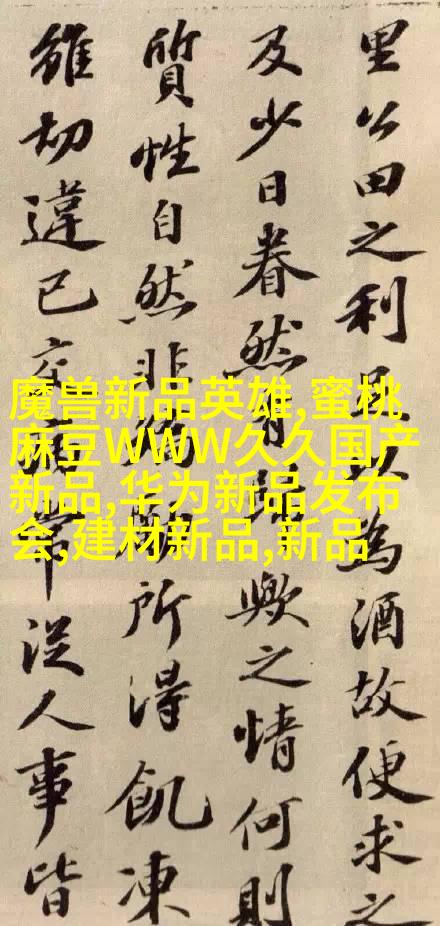 里公田之利足以為酒故便求之
及少日眷然有歸歟之情何則
質性自然非矯勵所得飢凍
雖切違己交病嘗從人事皆
魔兽新品英雄,蜜桃
麻豆WWW久久国产
新品,华为新品发布
会,建材新品,新品